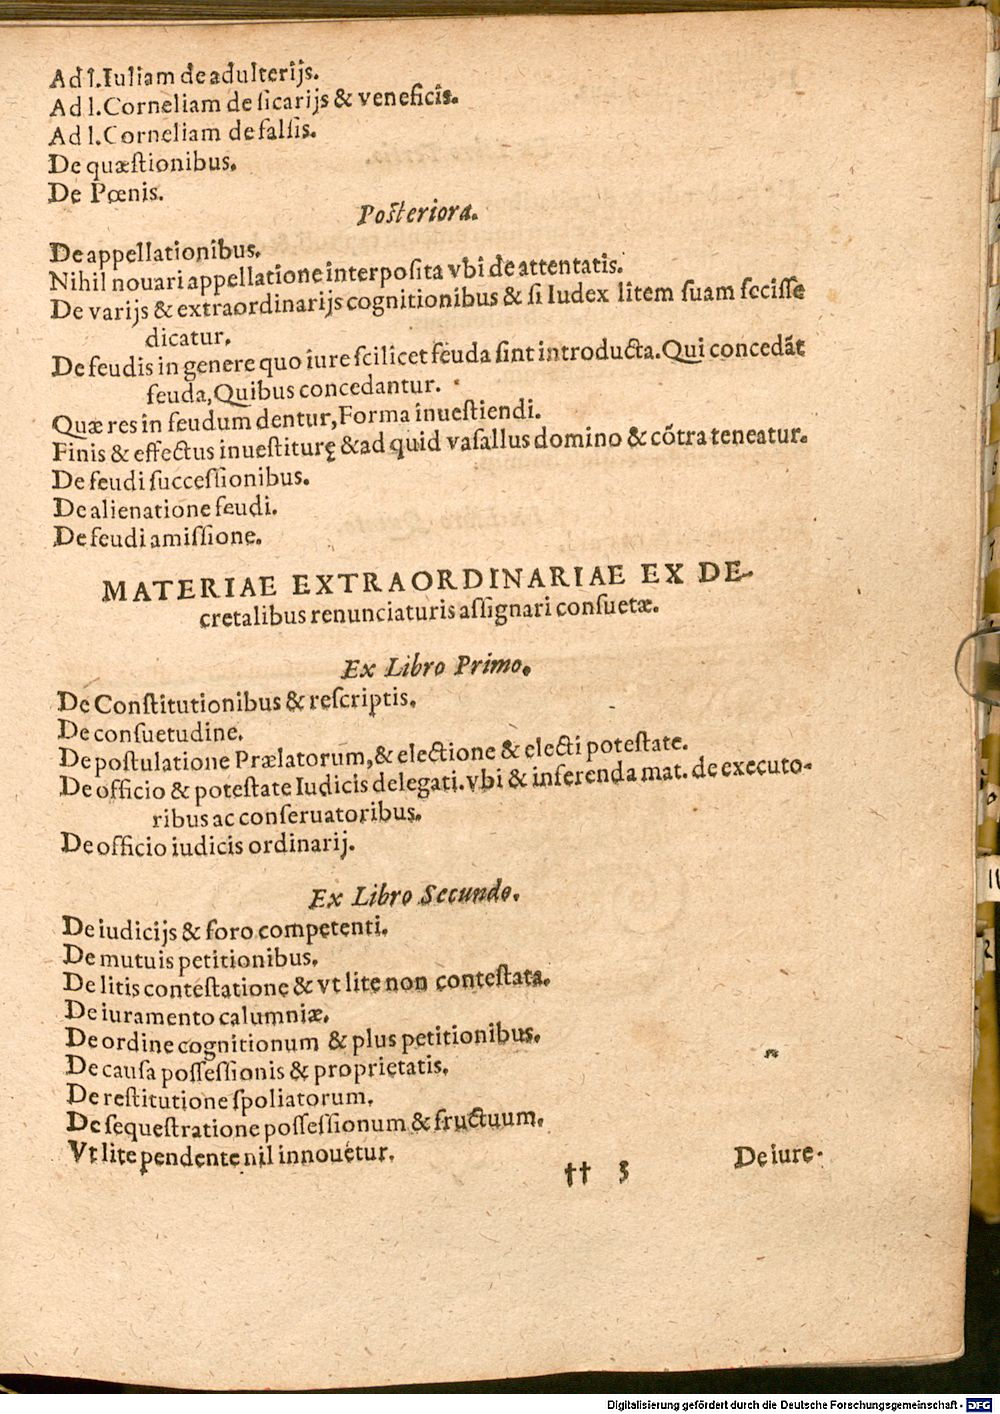 Ad l.Iuliam de adulterijs.
Ad l.Corneliam de ſicarijs & veneficis.
Ad l.Corneliam de falſis.
De quæſtionibus.
De Pœnis.
Poſteriora.
De appellationibus.
Nihil nouari appellatione interpoſita vbi de attentatis.
De varijs & extraordinarijs cognitionibus & ſi Iudex litem ſuam feciſſe
dicatur.
De feudis in genere quo iure ſcilicet feuda ſint introducta. Qui concedāt
feuda, Quibus concedantur.
Quæ res in feudum dentur, Forma inueſtiendi.
Finis & effectus inueſtiturę & ad quid vaſallus domino & cōtra teneatur.
De feudi ſucceſſionibus.
De alienatione feudi.
De feudi amiſſione.
MATERIAE EXTRAORDINARIAE EX DE-
cretalibus renunciaturis aſſignari conſuetæ.
Ex Libro Primo.
De Conſtitutionibus & reſcriptis.
De conſuetudine.
De poſtulatione Prælatorum, & electione & electi poteſtate.
De officio & poteſtate Iudicis delegati. vbi & inferenda mat. de executo-
ribus ac conſeruatoribus.
De officio iudicis ordinarij.
Ex Libro Secundo.
De iudicijs & foro competenti.
De mutuis petitionibus.
De litis conteſtatione & vt lite non conteſtata.
De iuramento calumniæ.
De ordine cognitionum & plus petitionibus.
De cauſa poſſeſſionis & proprietatis.
De reſtitutione ſpoliatorum.
De ſequeſtratione poſſeſſionum & fructuum.
Vt lite pendente nil innouētur.
†† 3 De iure
Digitalisierung gefördert durch die Deutsche Forschungsgemeinschaft - DFG